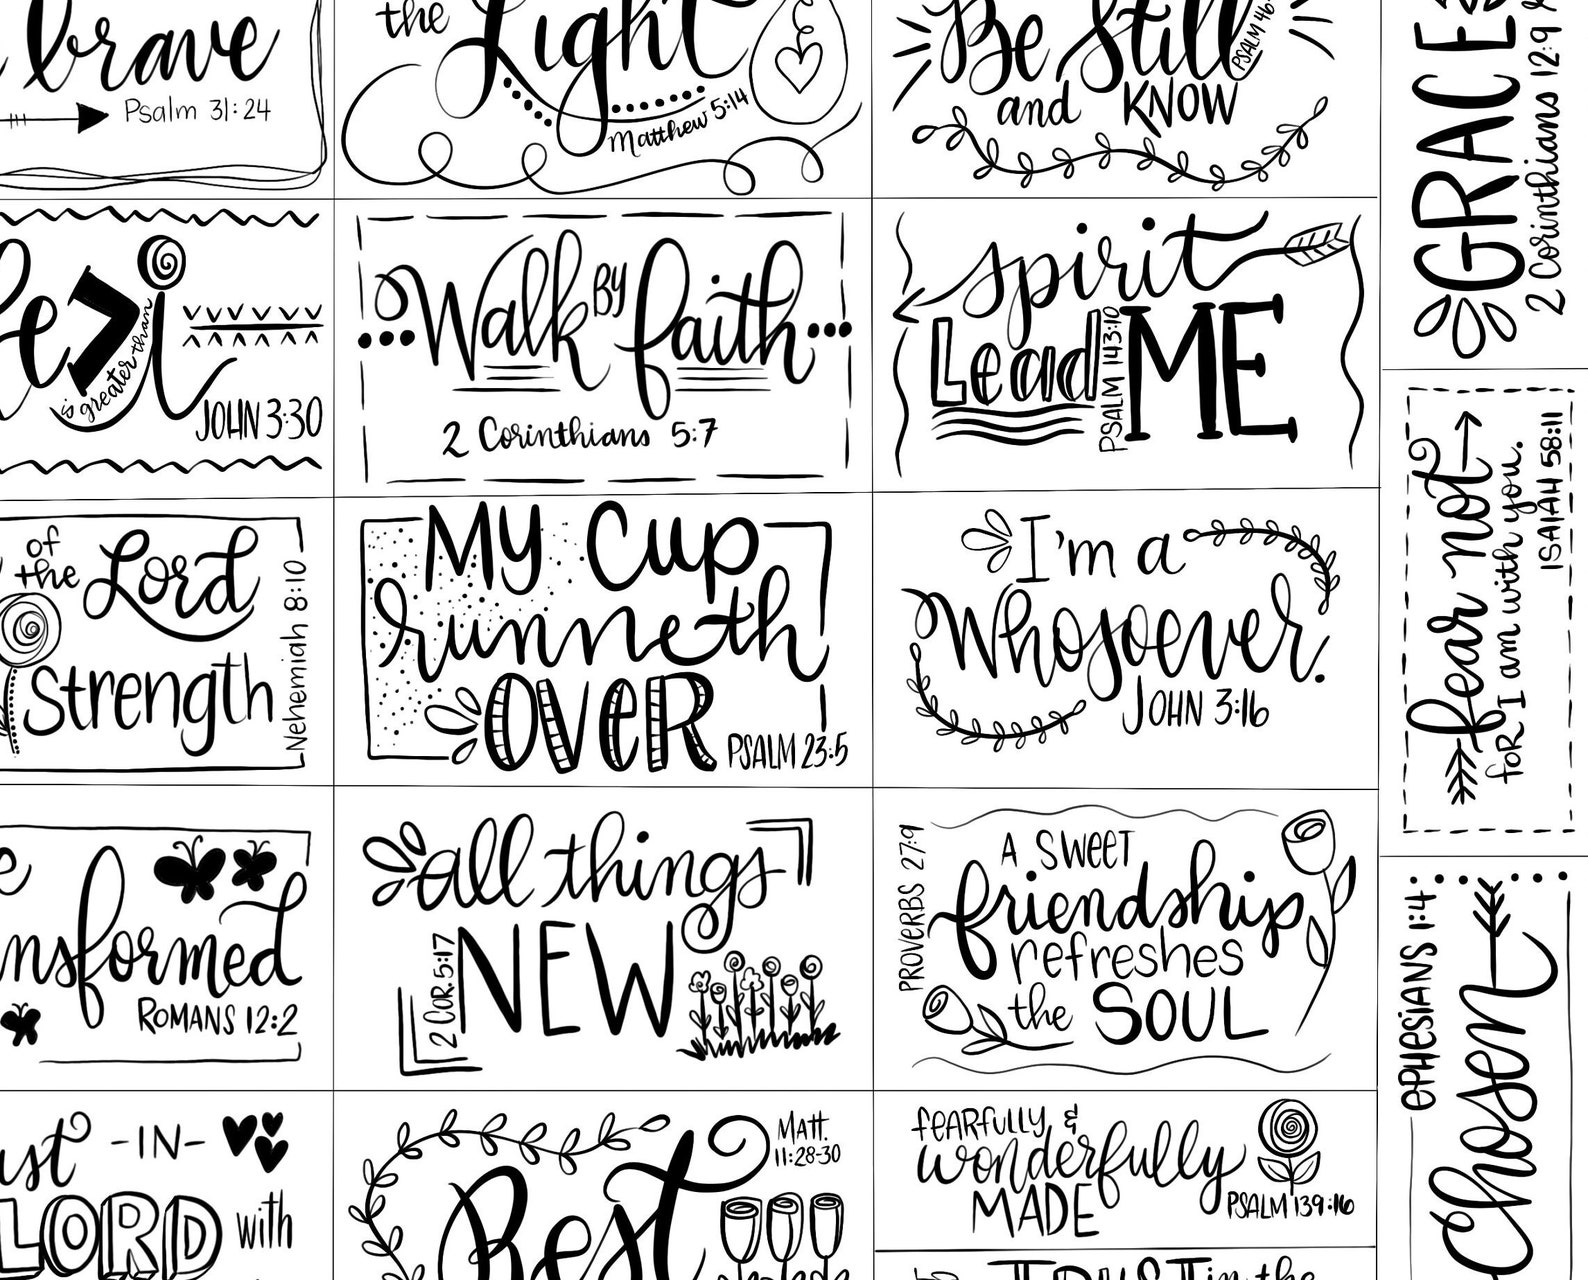 brave
Psalm 31:24
the Light
Matthew 5:14
Be Still
PSALM 46
and KNOW
GRACE
2 Corinthians 12:9
is greater than
i
JOHN 3:30
Walk BY faith
2 Corinthians 5:7
spirit
Lead ME
PSALM 143:10
fear not
for I am with you.
ISAIAH 58:11
of
the Lord
Strength
Nehemiah 8:10
My Cup
runneth
OVER
PSALM 23:5
I'm a
Whosoever.
JOHN 3:16
nsformed
ROMANS 12:2
all things
NEW
2 COR. 5:17
A SWEET
friendship
refreshes
the SOUL
PROVERBS 27:9
EPHESIANS 1:4
Chosen
ust -IN-
LORD with
Rest
Matt.
11:28-30
fearfully &
wonderfully
MADE
PSALM 139:16
TRUST in the